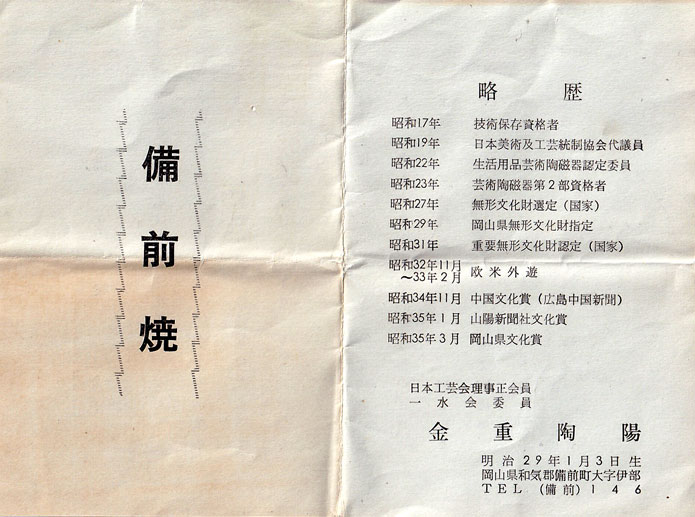 備前焼
略歴
昭和17年 技術保存資格者
昭和19年 日本美術及工芸統制協会代議員
昭和22年 生活用品芸術陶磁器認定委員
昭和23年 芸術陶磁器第2部資格者
昭和27年 無形文化財選定（国家）
昭和29年 岡山県無形文化財指定
昭和31年 重要無形文化財認定（国家）
昭和32年11月
～33年2月 欧米外遊
昭和34年11月 中国文化賞（広島中国新聞）
昭和35年1月 山陽新聞社文化賞
昭和35年3月 岡山県文化賞
日本工芸会理事正会員
一水会委員
金重陶陽
明治29年1月3日生
岡山県和気郡備前町大字伊部
TEL（備前）146